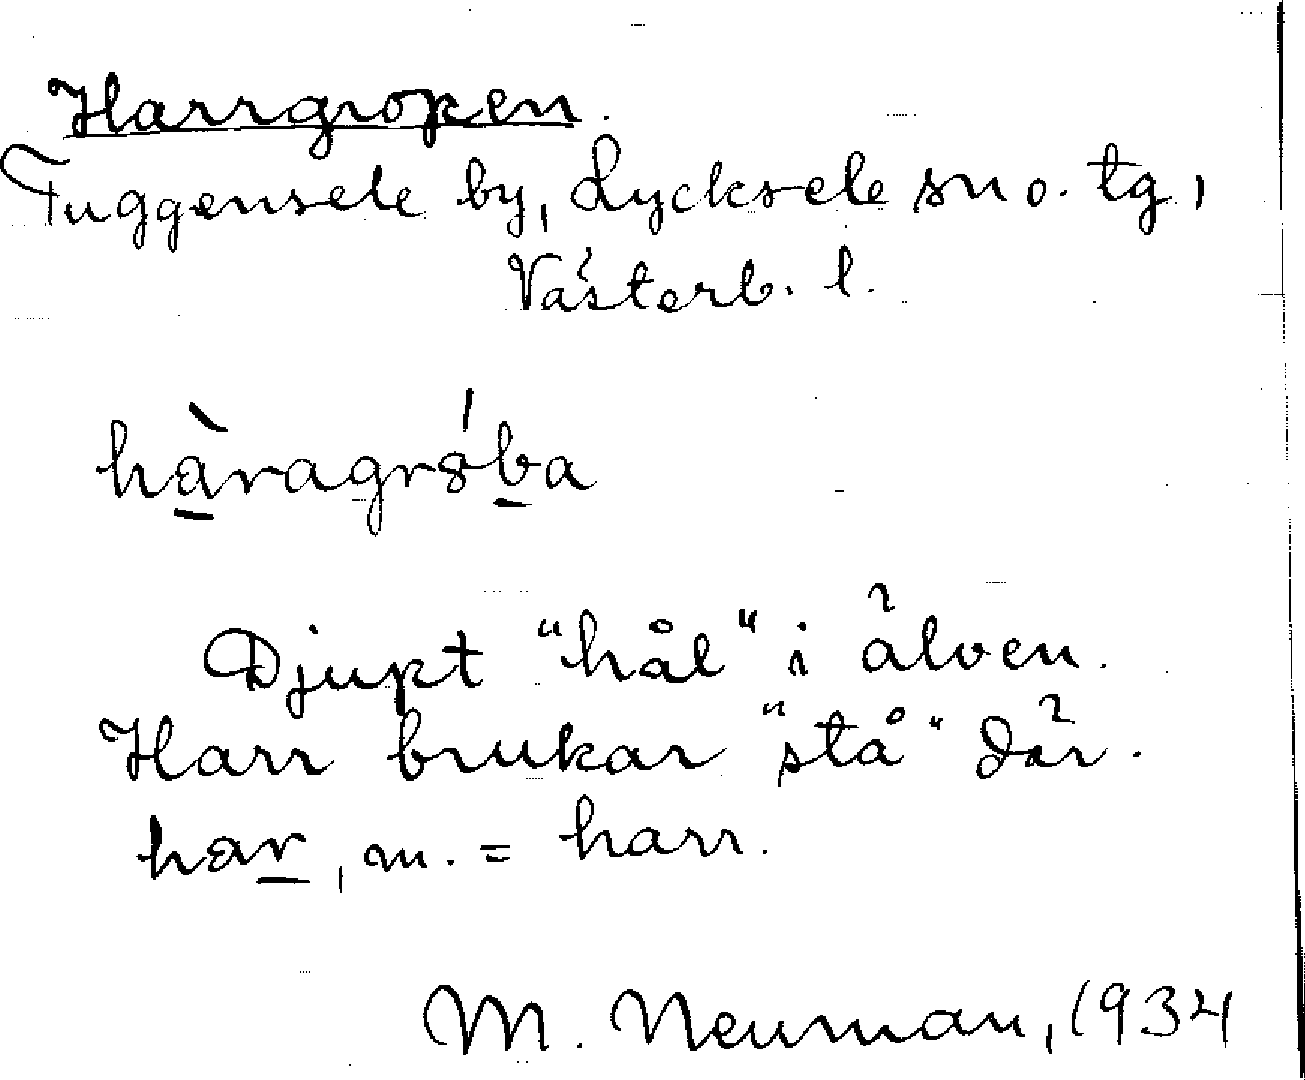 Harrgropen.
Tuggensele by, Lycksele sn o. tg,
Västerb. l.
hàragrȣ́ba
Djupt "hål" i älven.
Harr brukar "stå" där.
har, m. = harr.
M. Neuman, 1934